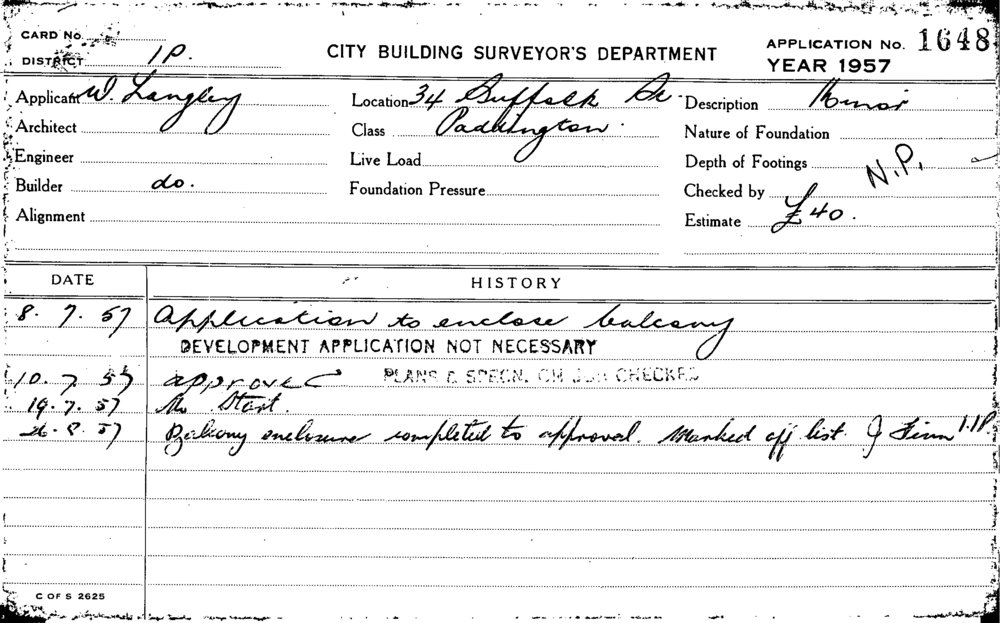 CARD No.
DISTRICT 1P.
CITY BUILDING SURVEYOR'S DEPARTMENT
APPLICATION No. 1648
YEAR 1957
Applicant W. Langley
Location 34 Suffolk St.
Description Minor
Architect
Class Paddington.
Nature of Foundation
Engineer
Live Load
Depth of Footings
N.P.
Builder do.
Foundation Pressure
Checked by
Alignment
Estimate £40.
DATE HISTORY
8. 7. 57 Application to enclose balcony
DEVELOPMENT APPLICATION NOT NECESSARY
10. 7. 57 approved PLANS & SPECN. ON JOB CHECKED
19. 7. 57 No Start.
26. 8. 57 Balcony enclosure completed to approval. Marked off list. J Finn 1.1P.
C OF S 2625